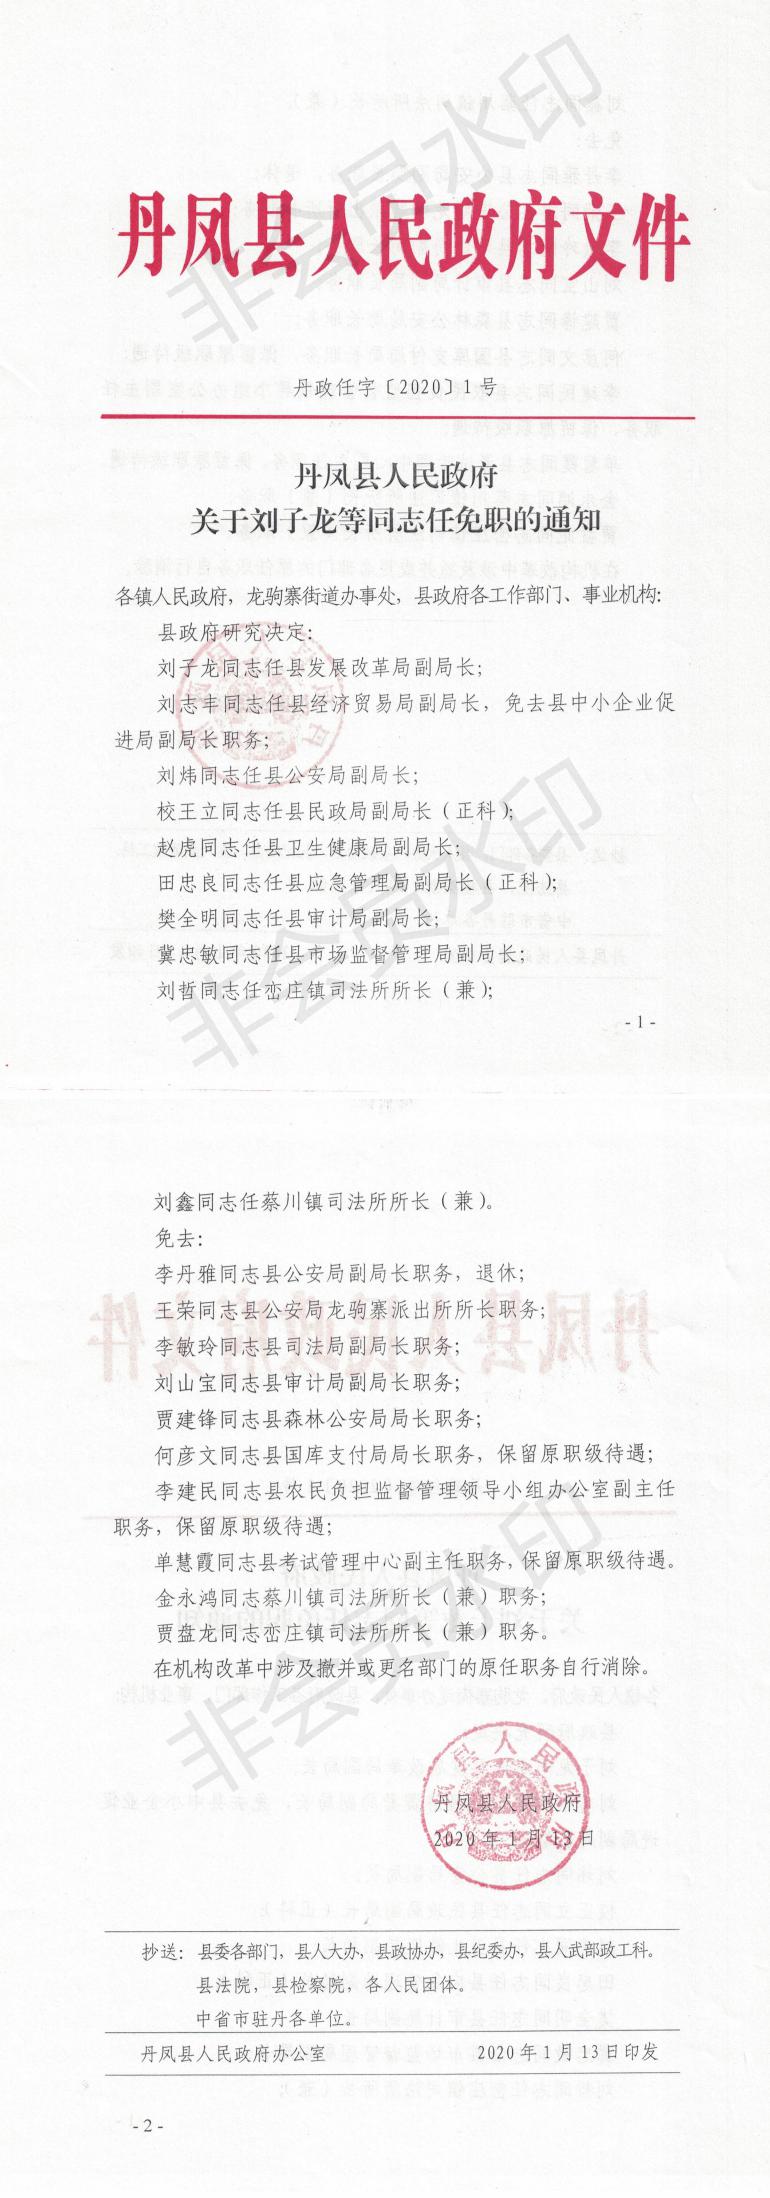 丹凤县人民政府文件
丹政任字〔2020〕1号
丹凤县人民政府
关于刘子龙等同志任免职的通知
各镇人民政府，龙驹寨街道办事处，县政府各工作部门、事业机构：
县政府研究决定：
刘子龙同志任县发展改革局副局长；
刘志丰同志任县经济贸易局副局长，免去县中小企业促
进局副局长职务；
刘炜同志任县公安局副局长；
校王立同志任县民政局副局长（正科）；
赵虎同志任县卫生健康局副局长；
田忠良同志任县应急管理局副局长（正科）；
樊全明同志任县审计局副局长；
冀忠敏同志任县市场监督管理局副局长；
刘哲同志任峦庄镇司法所所长（兼）；
- 1 -
刘鑫同志任蔡川镇司法所所长（兼）。
免去：
李丹雅同志县公安局副局长职务，退休；
王荣同志县公安局龙驹寨派出所所长职务；
李敏玲同志县司法局副局长职务；
刘山宝同志县审计局副局长职务；
贾建锋同志县森林公安局局长职务；
何彦文同志县国库支付局局长职务，保留原职级待遇；
李建民同志县农民负担监督管理领导小组办公室副主任
职务，保留原职级待遇；
单慧霞同志县考试管理中心副主任职务，保留原职级待遇。
金永鸿同志蔡川镇司法所所长（兼）职务；
贾盘龙同志峦庄镇司法所所长（兼）职务。
在机构改革中涉及撤并或更名部门的原任职务自行消除。
丹凤县人民政府
2020年1月13日
抄送：县委各部门，县人大办，县政协办，县纪委办，县人武部政工科。
县法院，县检察院，各人民团体。
中省市驻丹各单位。
丹凤县人民政府办公室 2020年1月13日印发
- 2 -
非会员水印
非会员水印
非会员水印